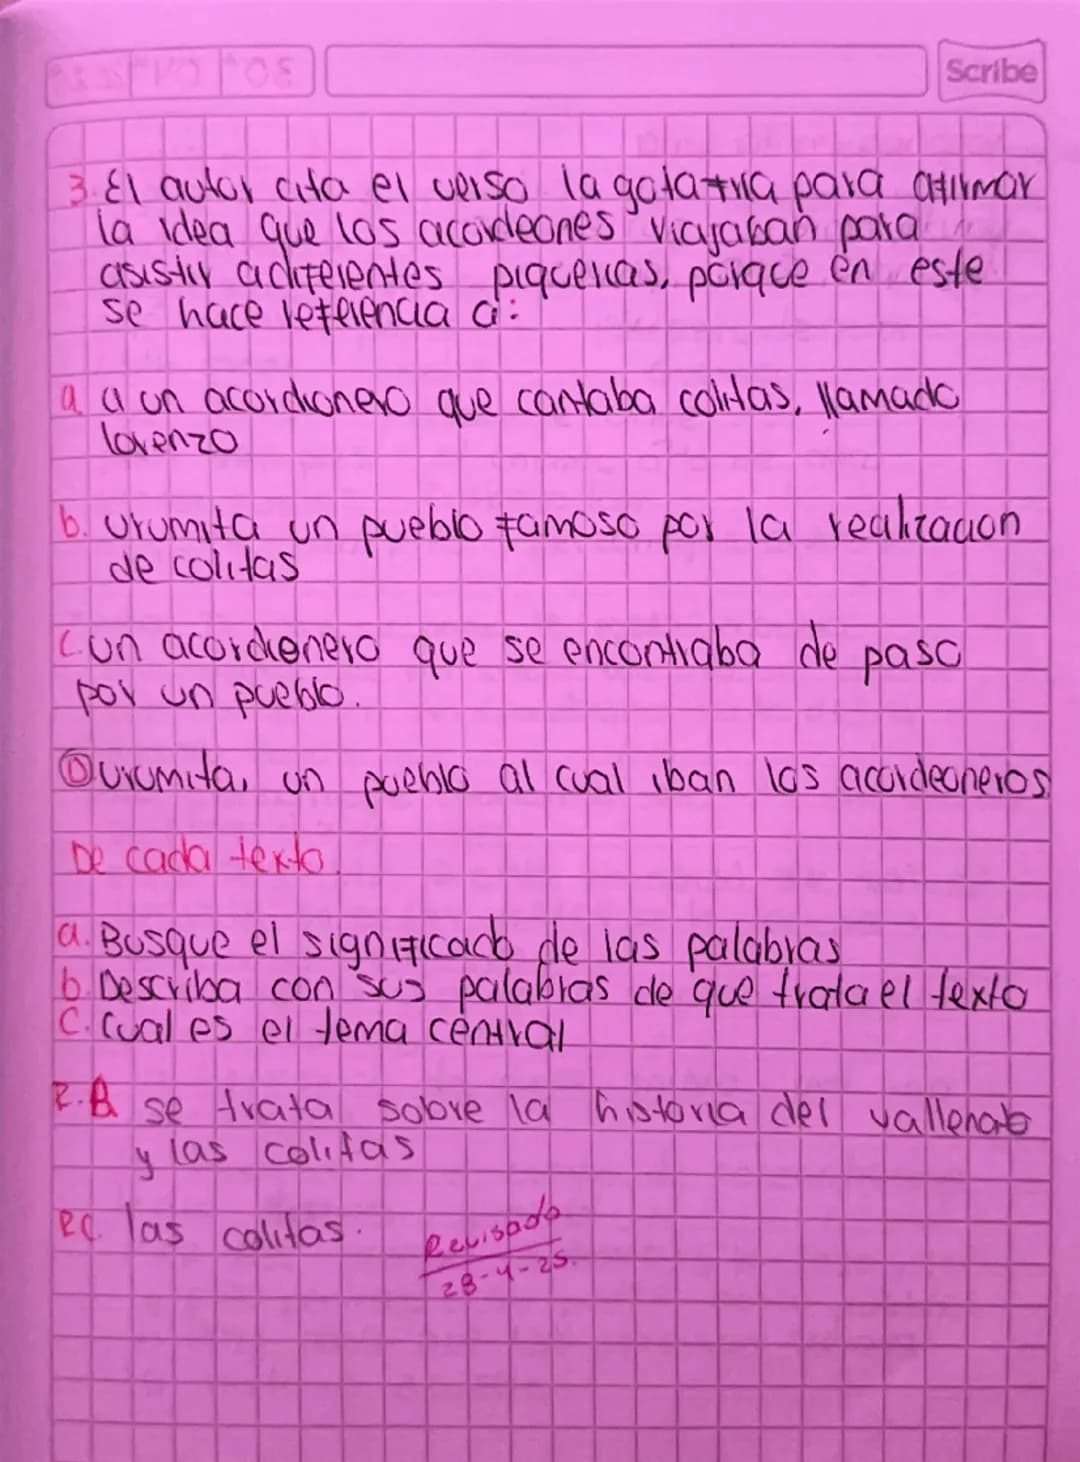 Scribe
3. El autor cita el verso la gota fria para afirmar
la idea que los acordeones viajaban para
asistir a diferentes piquerias, porque en este
se hace referencia a:
a a un acordionero que cantaba colitas, llamado
lorenzo
b. Urumita un pueblo famoso por la realizacion
de colitas
C. un acordionero que se encontraba de paso
por un pueblo.
D urumita, un pueblo al cual iban los acordeoneros
De cada texto.
a. Busque el significado de las palabras
b. Describa con sus palabras de que trata el texto
C. Cual es el tema central
R.B se trata sobre la historia del vallenato
y las colitas
RC. las colitas.
Revisado
28-4-25.